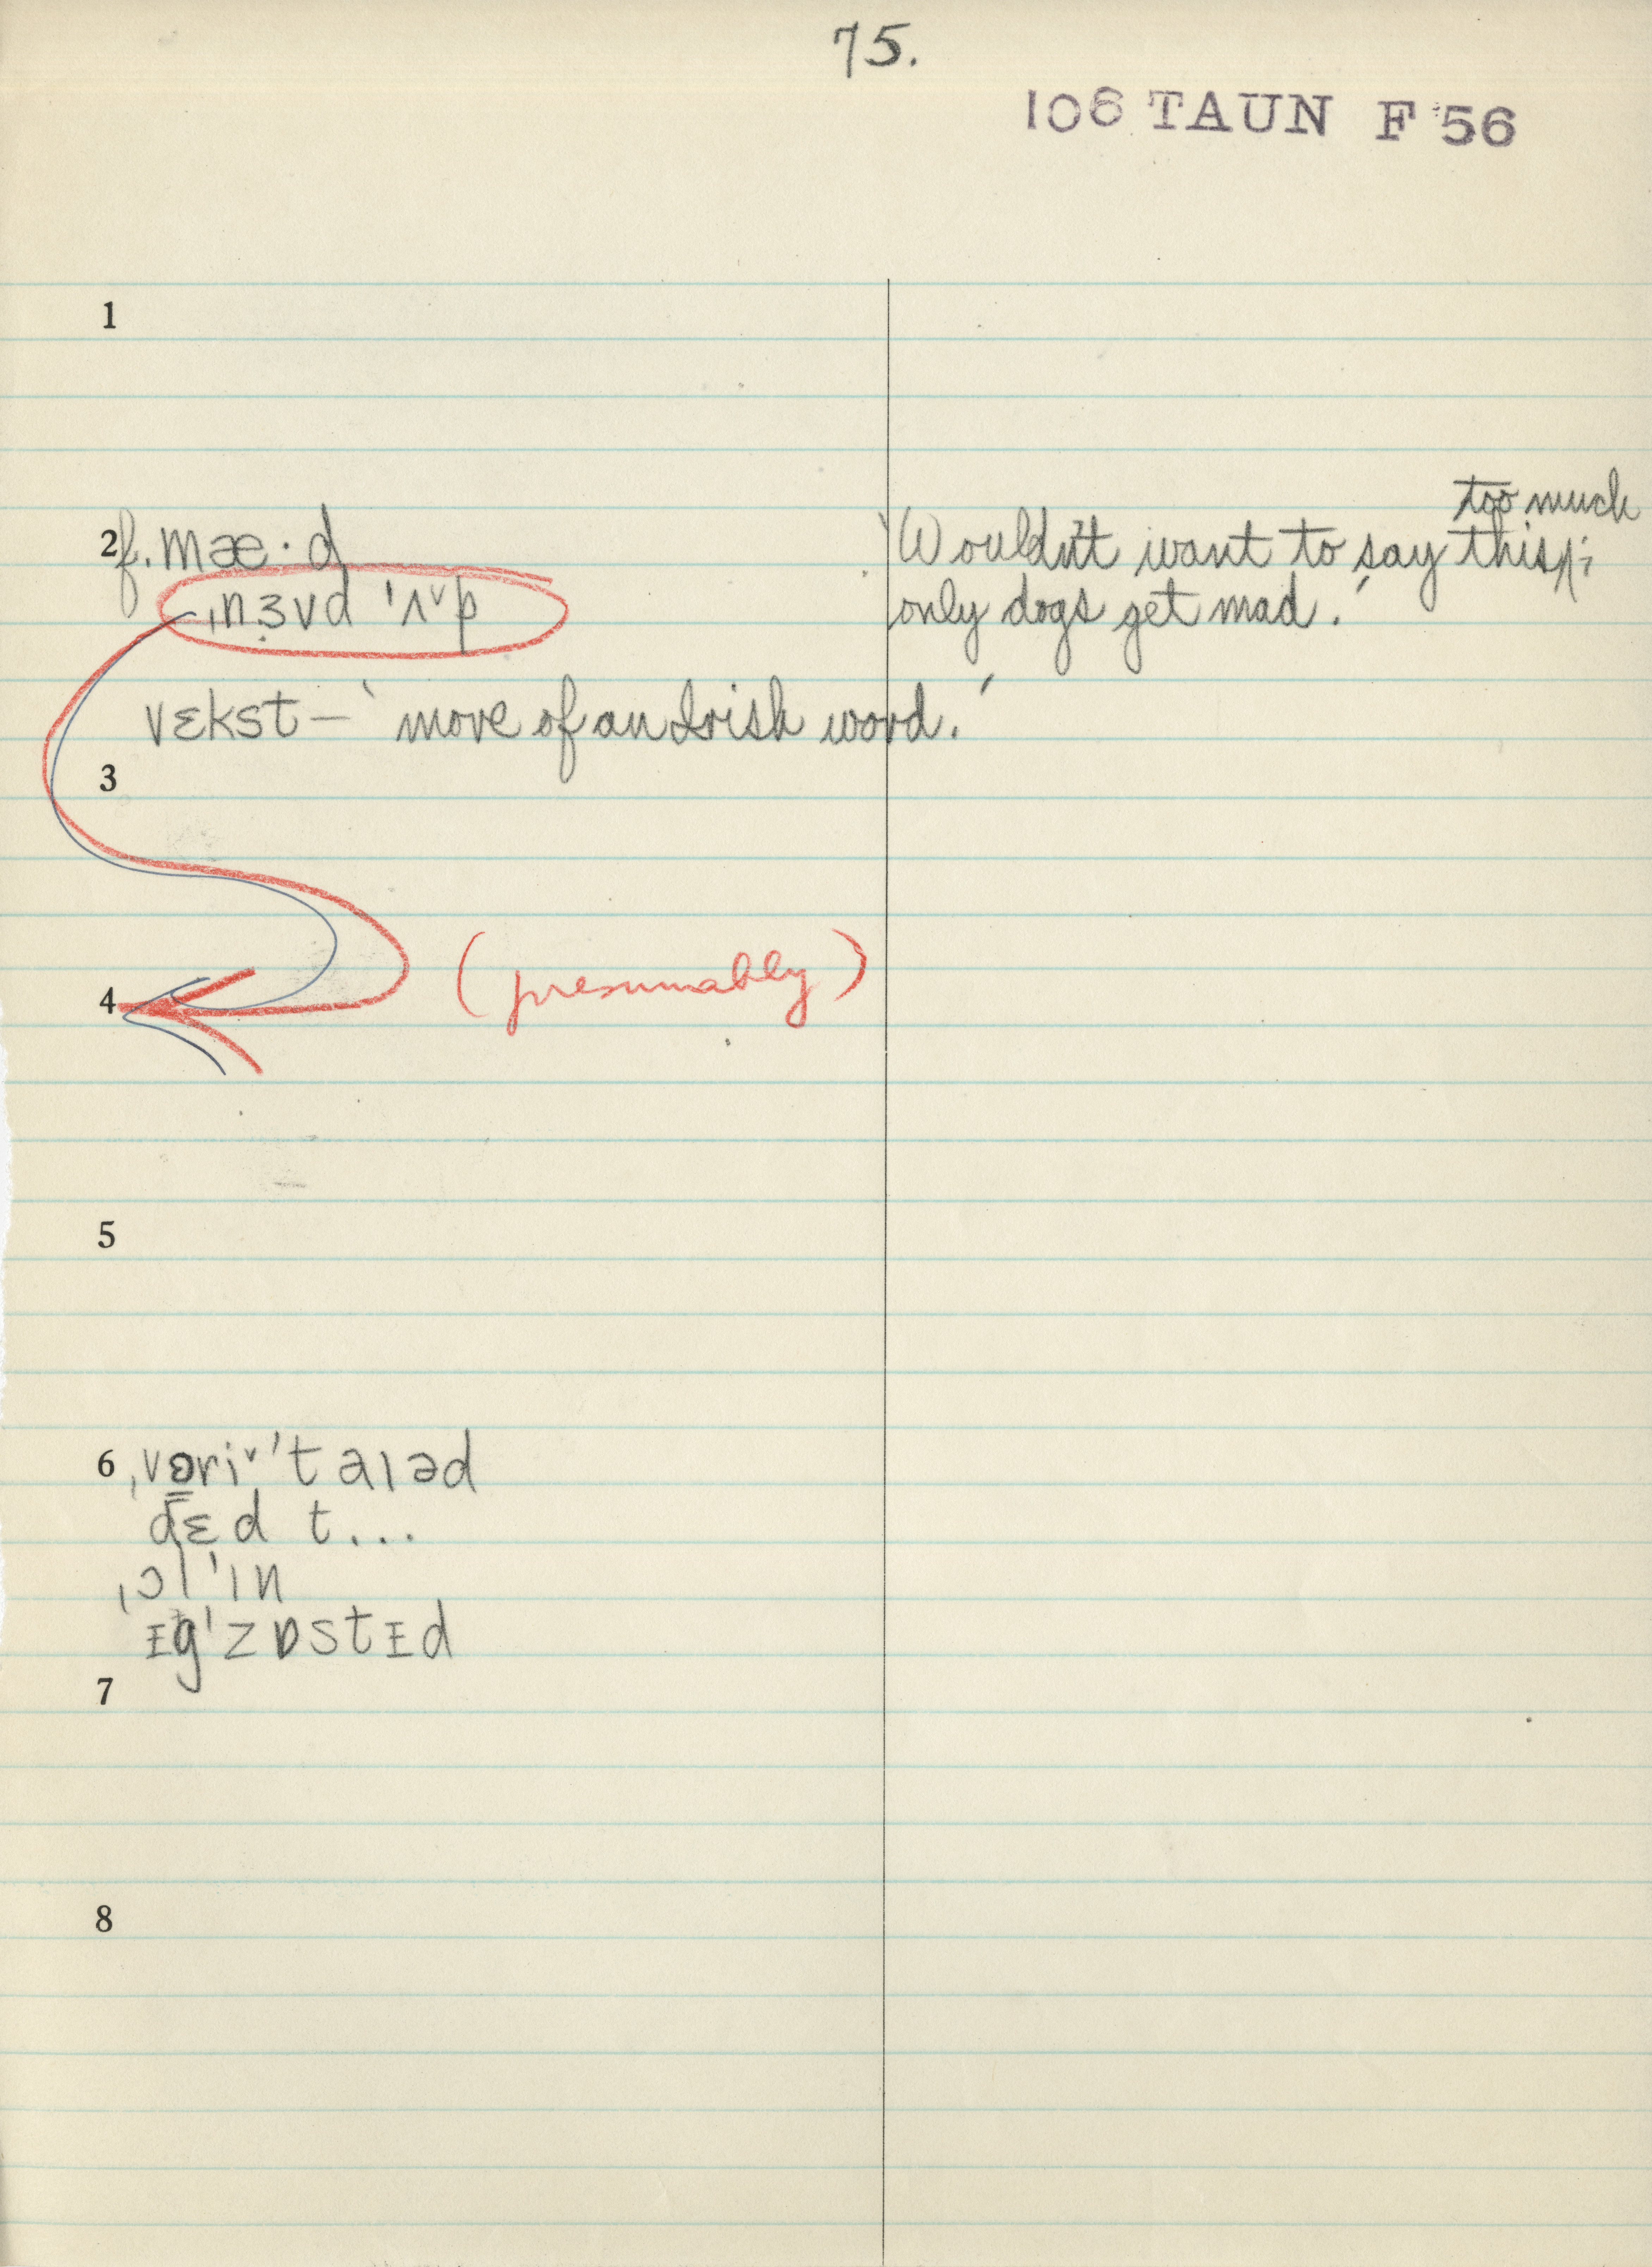 75.
106 TAUN F 56
1
too much
2 f. mæ·d ‘Wouldn't want to say this;
ˌnɜvd ˈʌᵛp only dogs get mad.’
vɛkst – ‘move of an Irish word.’
3
4 (presumably)
5
6 ˌvəriᵛˈtaɪəd
dɛd t...
ˌɔlˈɪn
ɪgˈzɒstɪd
7
8